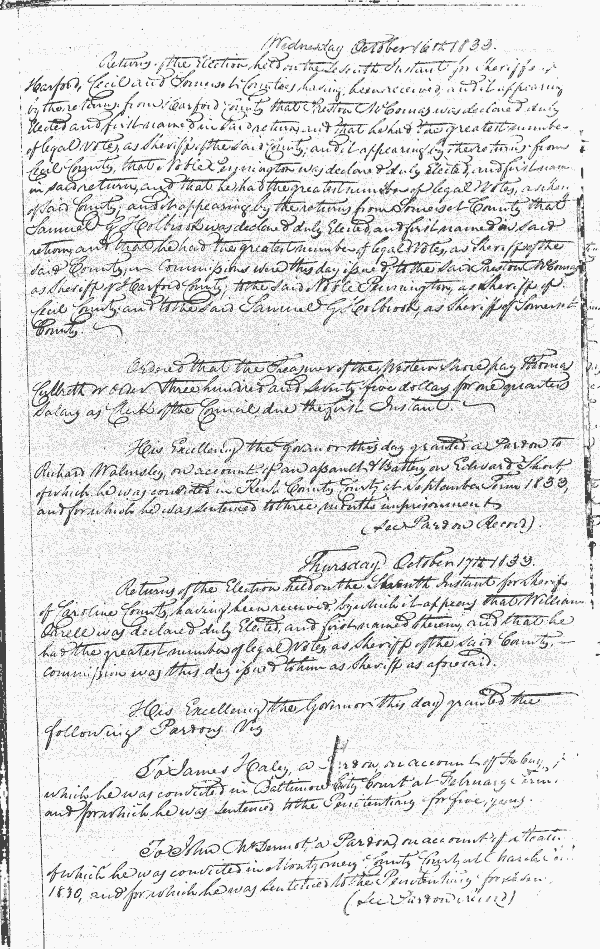 Wednesday October 16th 1833.
Returns of the Election held on the Seventh Instant for Sheriffs of
Harford, Cecil and Somerset Counties, having been received, and it appearing
by the returns from Harford County that Preston McComas was declared duly
Elected and first named in said return, and that he had the greatest number
of legal Votes, as Sheriff of the said County, and it appearing by the returns from
Cecil County, that Noble Pennington was declared duly Elected, and first named
in said return, and that he had the greatest number of legal Votes, as Sheriff
of said County, and it appearing by the returns from Somerset County that
Samuel G. Holbrook was declared duly Elected and first named in said
return, and that he had the greatest number of legal Votes, as Sheriff of the
said County, Commissions were this day issued, to the said Preston McComas
as Sheriff of Harford County, to the said Noble Pennington, as Sheriff of
Cecil County, and to the said Samuel G. Holbrook, as Sheriff of Somerset
County.
Ordered that the Treasurer of the Western Shore pay Thomas
Culbreth or order three hundred and seventy five dollars for one quarters
Salary as Clerk of the Council due the first Instant.
His Excellency the Governor this day granted a Pardon to
Richard Walmsley, on account of an assault & Battery on Edward Short
of which he was convicted in Kent County Court at September Term 1833,
and for which he was sentenced to three months imprisonment
(See Pardon Record)
Thursday October 17th 1833.
Returns of the Election held on the Seventh Instant for Sheriff
of Caroline County, having been received, by which it appears that William
Orrell was declared duly Elected, and first named therein, and that he
had the greatest number of legal Votes as Sheriff of the said County,
commission was this day issued to him as Sheriff as aforesaid.
His Excellency the Governor this day granted the
following Pardons Viz
To James Haley, a Pardon, on account of
which he was convicted in Baltimore City Court at February Term
and for which he was sentenced to the Penitentiary for five years.
To John McDermot, a Pardon, on account of
of which he was convicted in Montgomery County Court at March
1830, and for which he was sentenced to the Penitentiary for
(See Pardon record)